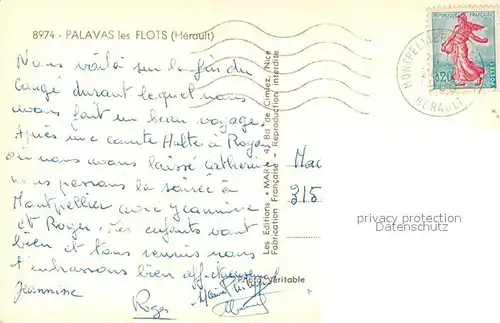 8974 - PALAVAS les FLOTS (Hérault)
RÉPUBLIQUE FRANÇAISE
0,20
POSTES
MONTPELLIER
HÉRAULT
Nous voilà sur la fin du
Congé durant lequel nous
avons fait un beau voyage.
Après une courte Halte à Royan
où nous avons laissé Catherine
nous passons la soirée à
Montpellier avec Jeannine
et Roger, les enfants vont
bien et tous réunis nous
t'embrassons bien affectueusement
Jeannine
Roger
Les Editions "MAR", 42, Bd de Cimiez, Nice
Fabrication Française - Reproduction interdite
Photo véritable
Mac
315
privacy protection
Datenschutz